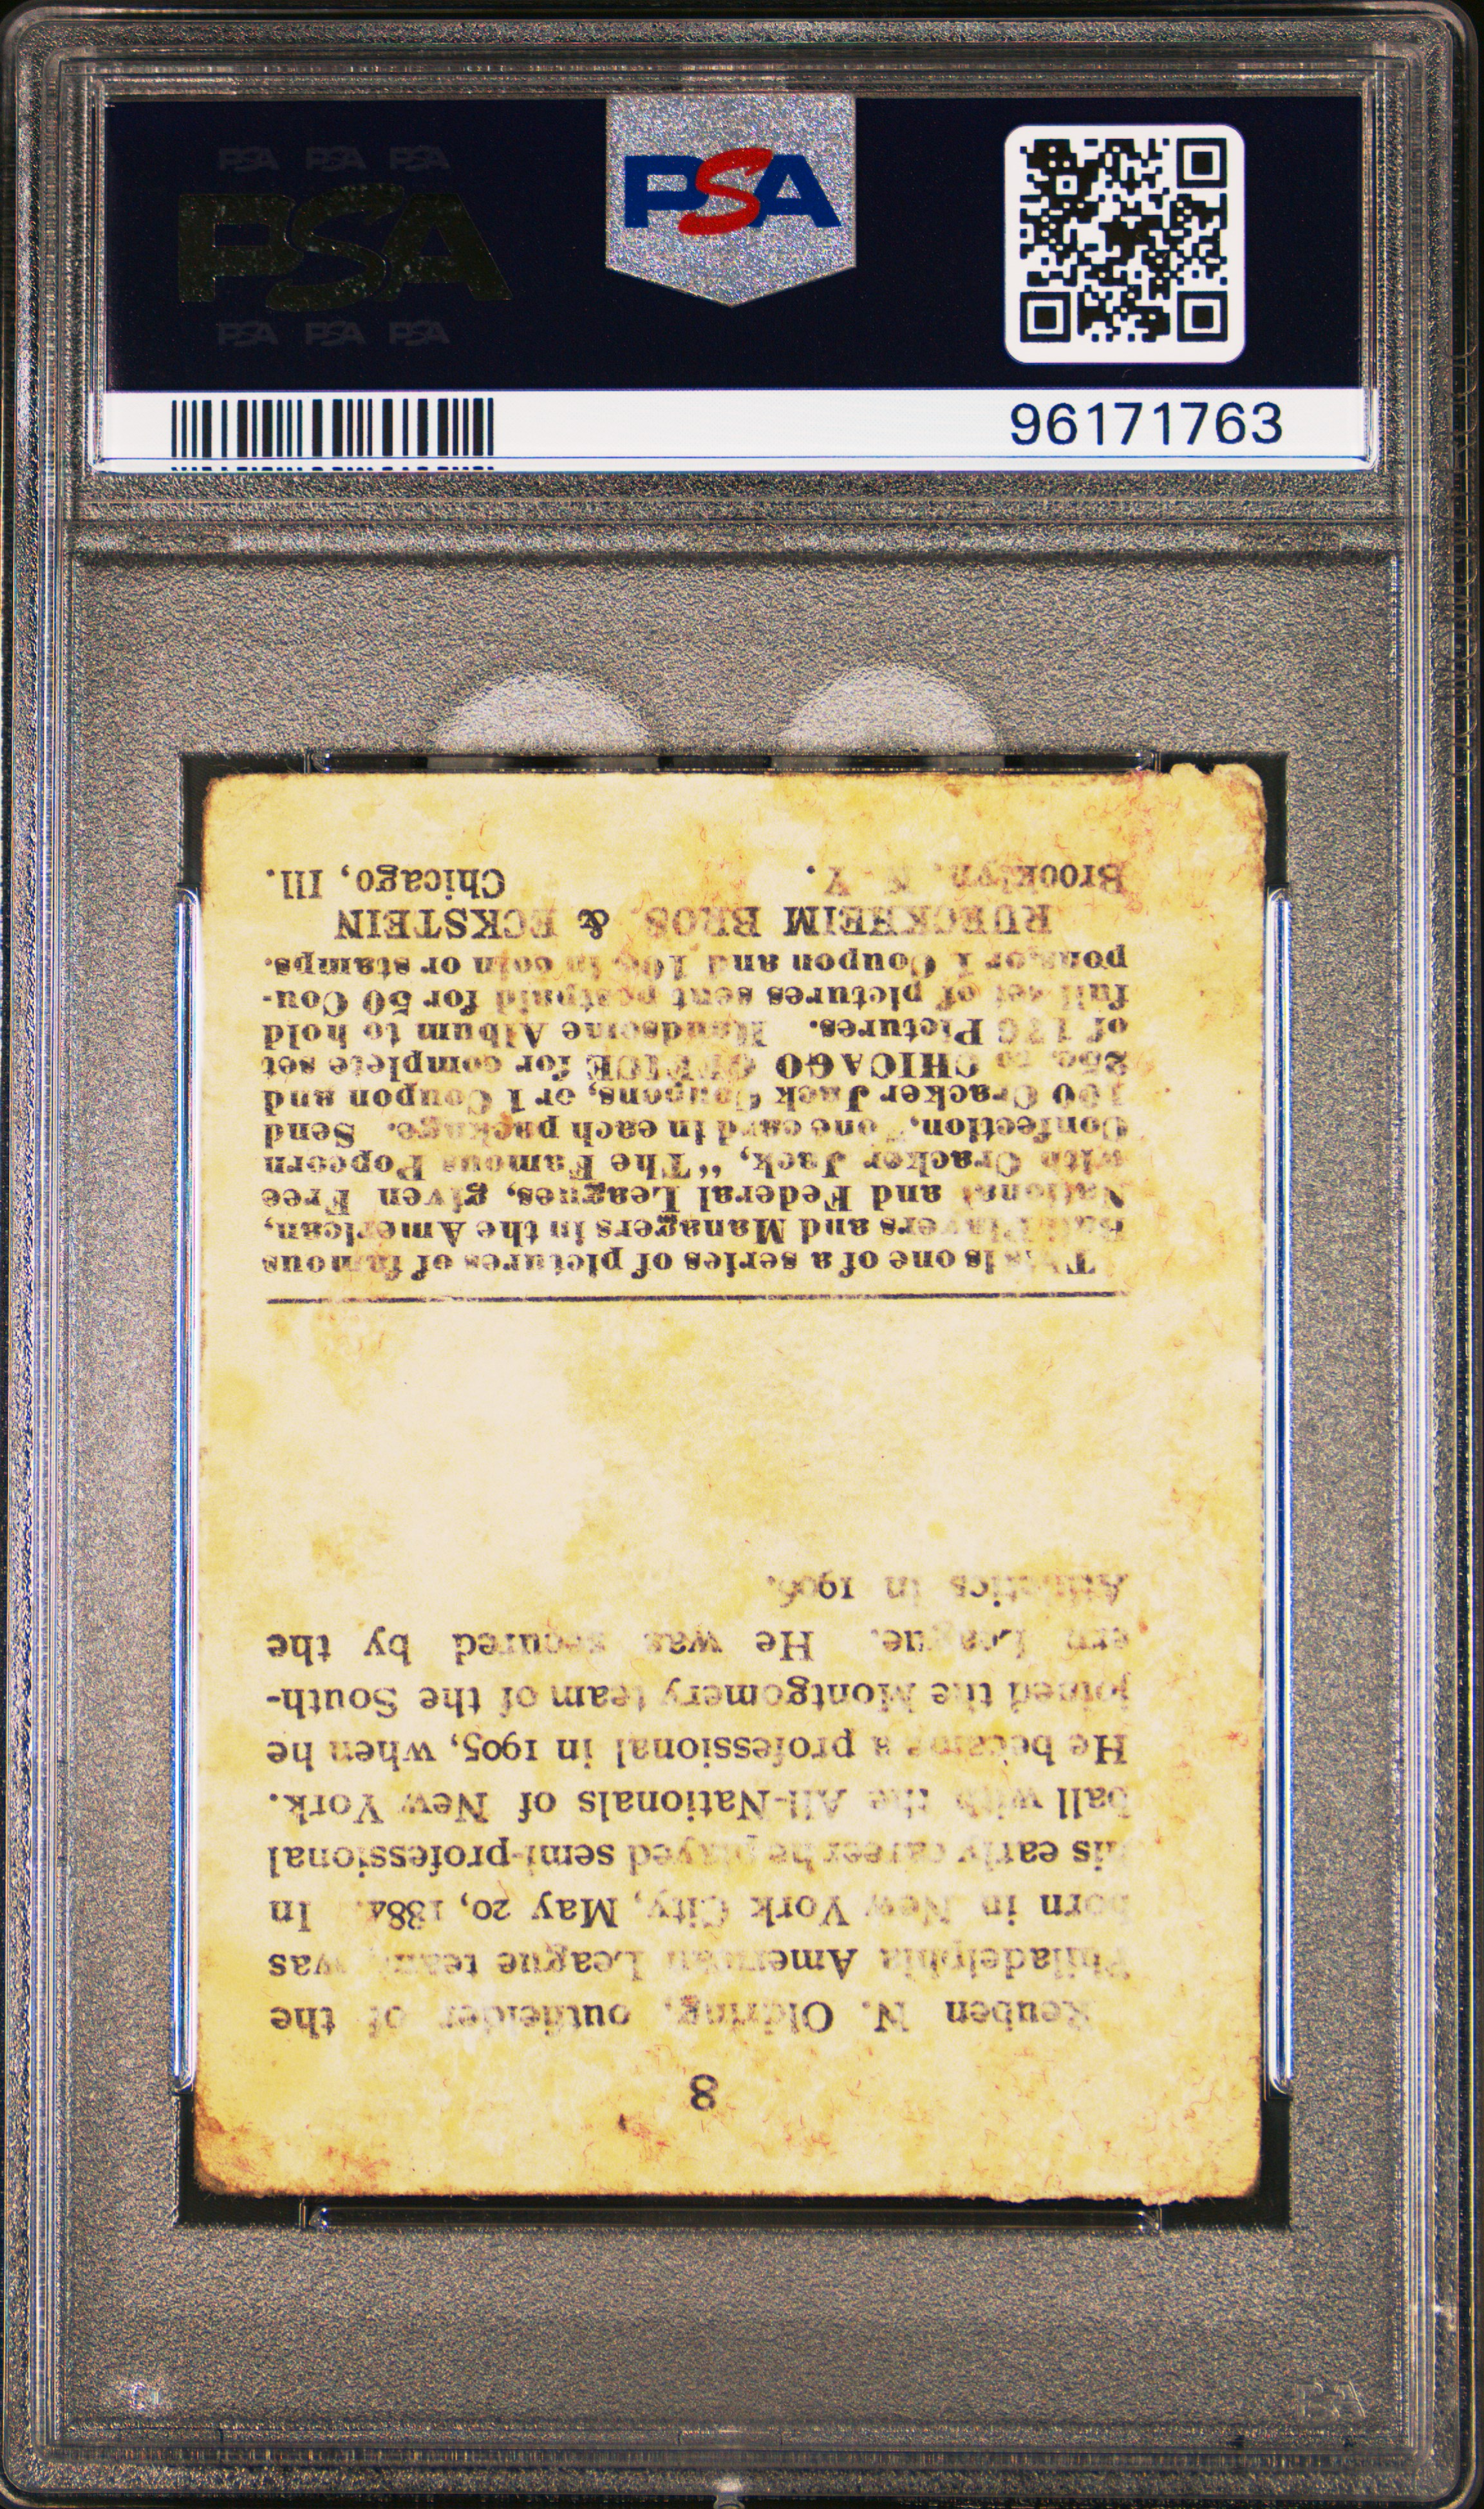 PSA PSA PSA
PSA
PSA PSA PSA
PSA
96171763
8
Reuben N. Oldring, outfielder of the
Philadelphia American League team, was
born in New York City, May 20, 1884. In
his early career he played semi-professional
ball with the All-Nationals of New York.
He became a professional in 1905, when he
joined the Montgomery team of the South-
ern League. He was secured by the
Athletics in 1906.
This is one of a series of pictures of famous
Ball Players and Managers in the American,
National and Federal Leagues, given Free
with Cracker Jack, "The Famous Popcorn
Confection," one card in each package. Send
100 Cracker Jack Coupons, or 1 Coupon and
25c. to CHICAGO OFFICE for complete set
of 176 Pictures. Handsome Album to hold
full set of pictures sent postpaid for 50 Cou-
pons or 1 Coupon and 10c in coin or stamps.
RUECKHEIM BROS. & ECKSTEIN
Brooklyn, N. Y. Chicago, Ill.